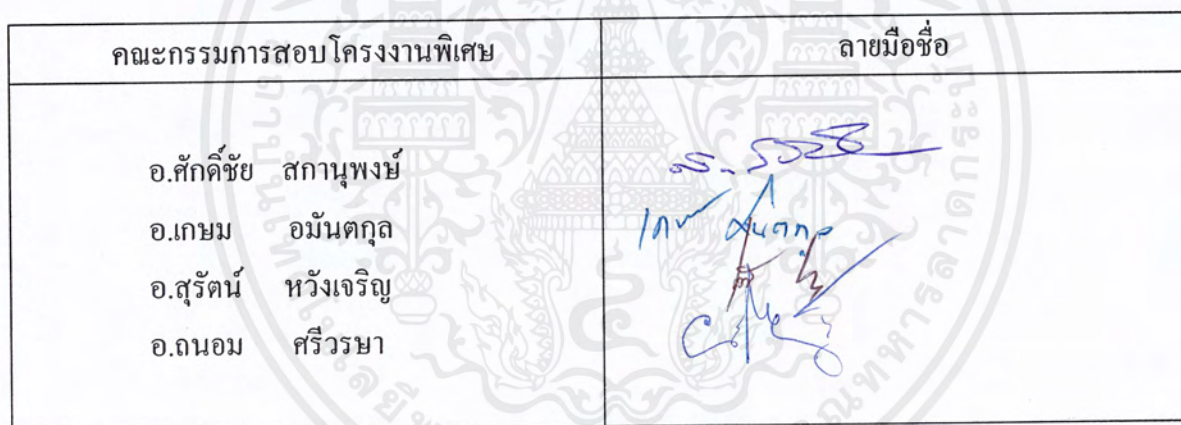 คณะกรรมการสอบโครงงานพิเศษ ลายมือชื่อ
อ.ศักดิ์ชัย สกานุพงษ์
อ.เกษม อมันตกุล
อ.สุรัตน์ หวังเจริญ
อ.ถนอม ศรีวรษา